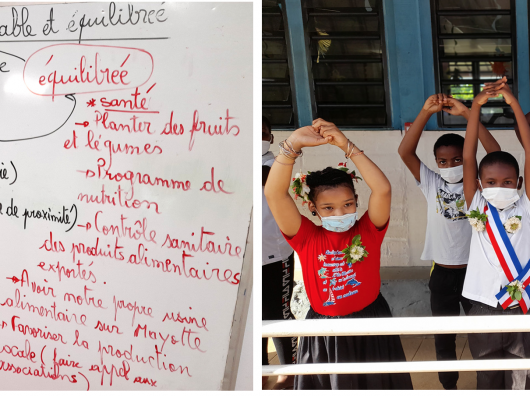 able et équilibreé
équilibreé
* santé
→ Planter des fruits
et légumes
→ Programme de
nutrition
→ Contrôle sanitaire
de proximité)
des produits alimentaires
exportes.
→ Avoir notre propre usine
alimentaire sur Mayotte
→ Favoriser la production
locale (faire appel aux
associations)